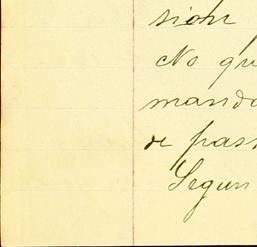 sion
No qu
mando
de pas
Segun